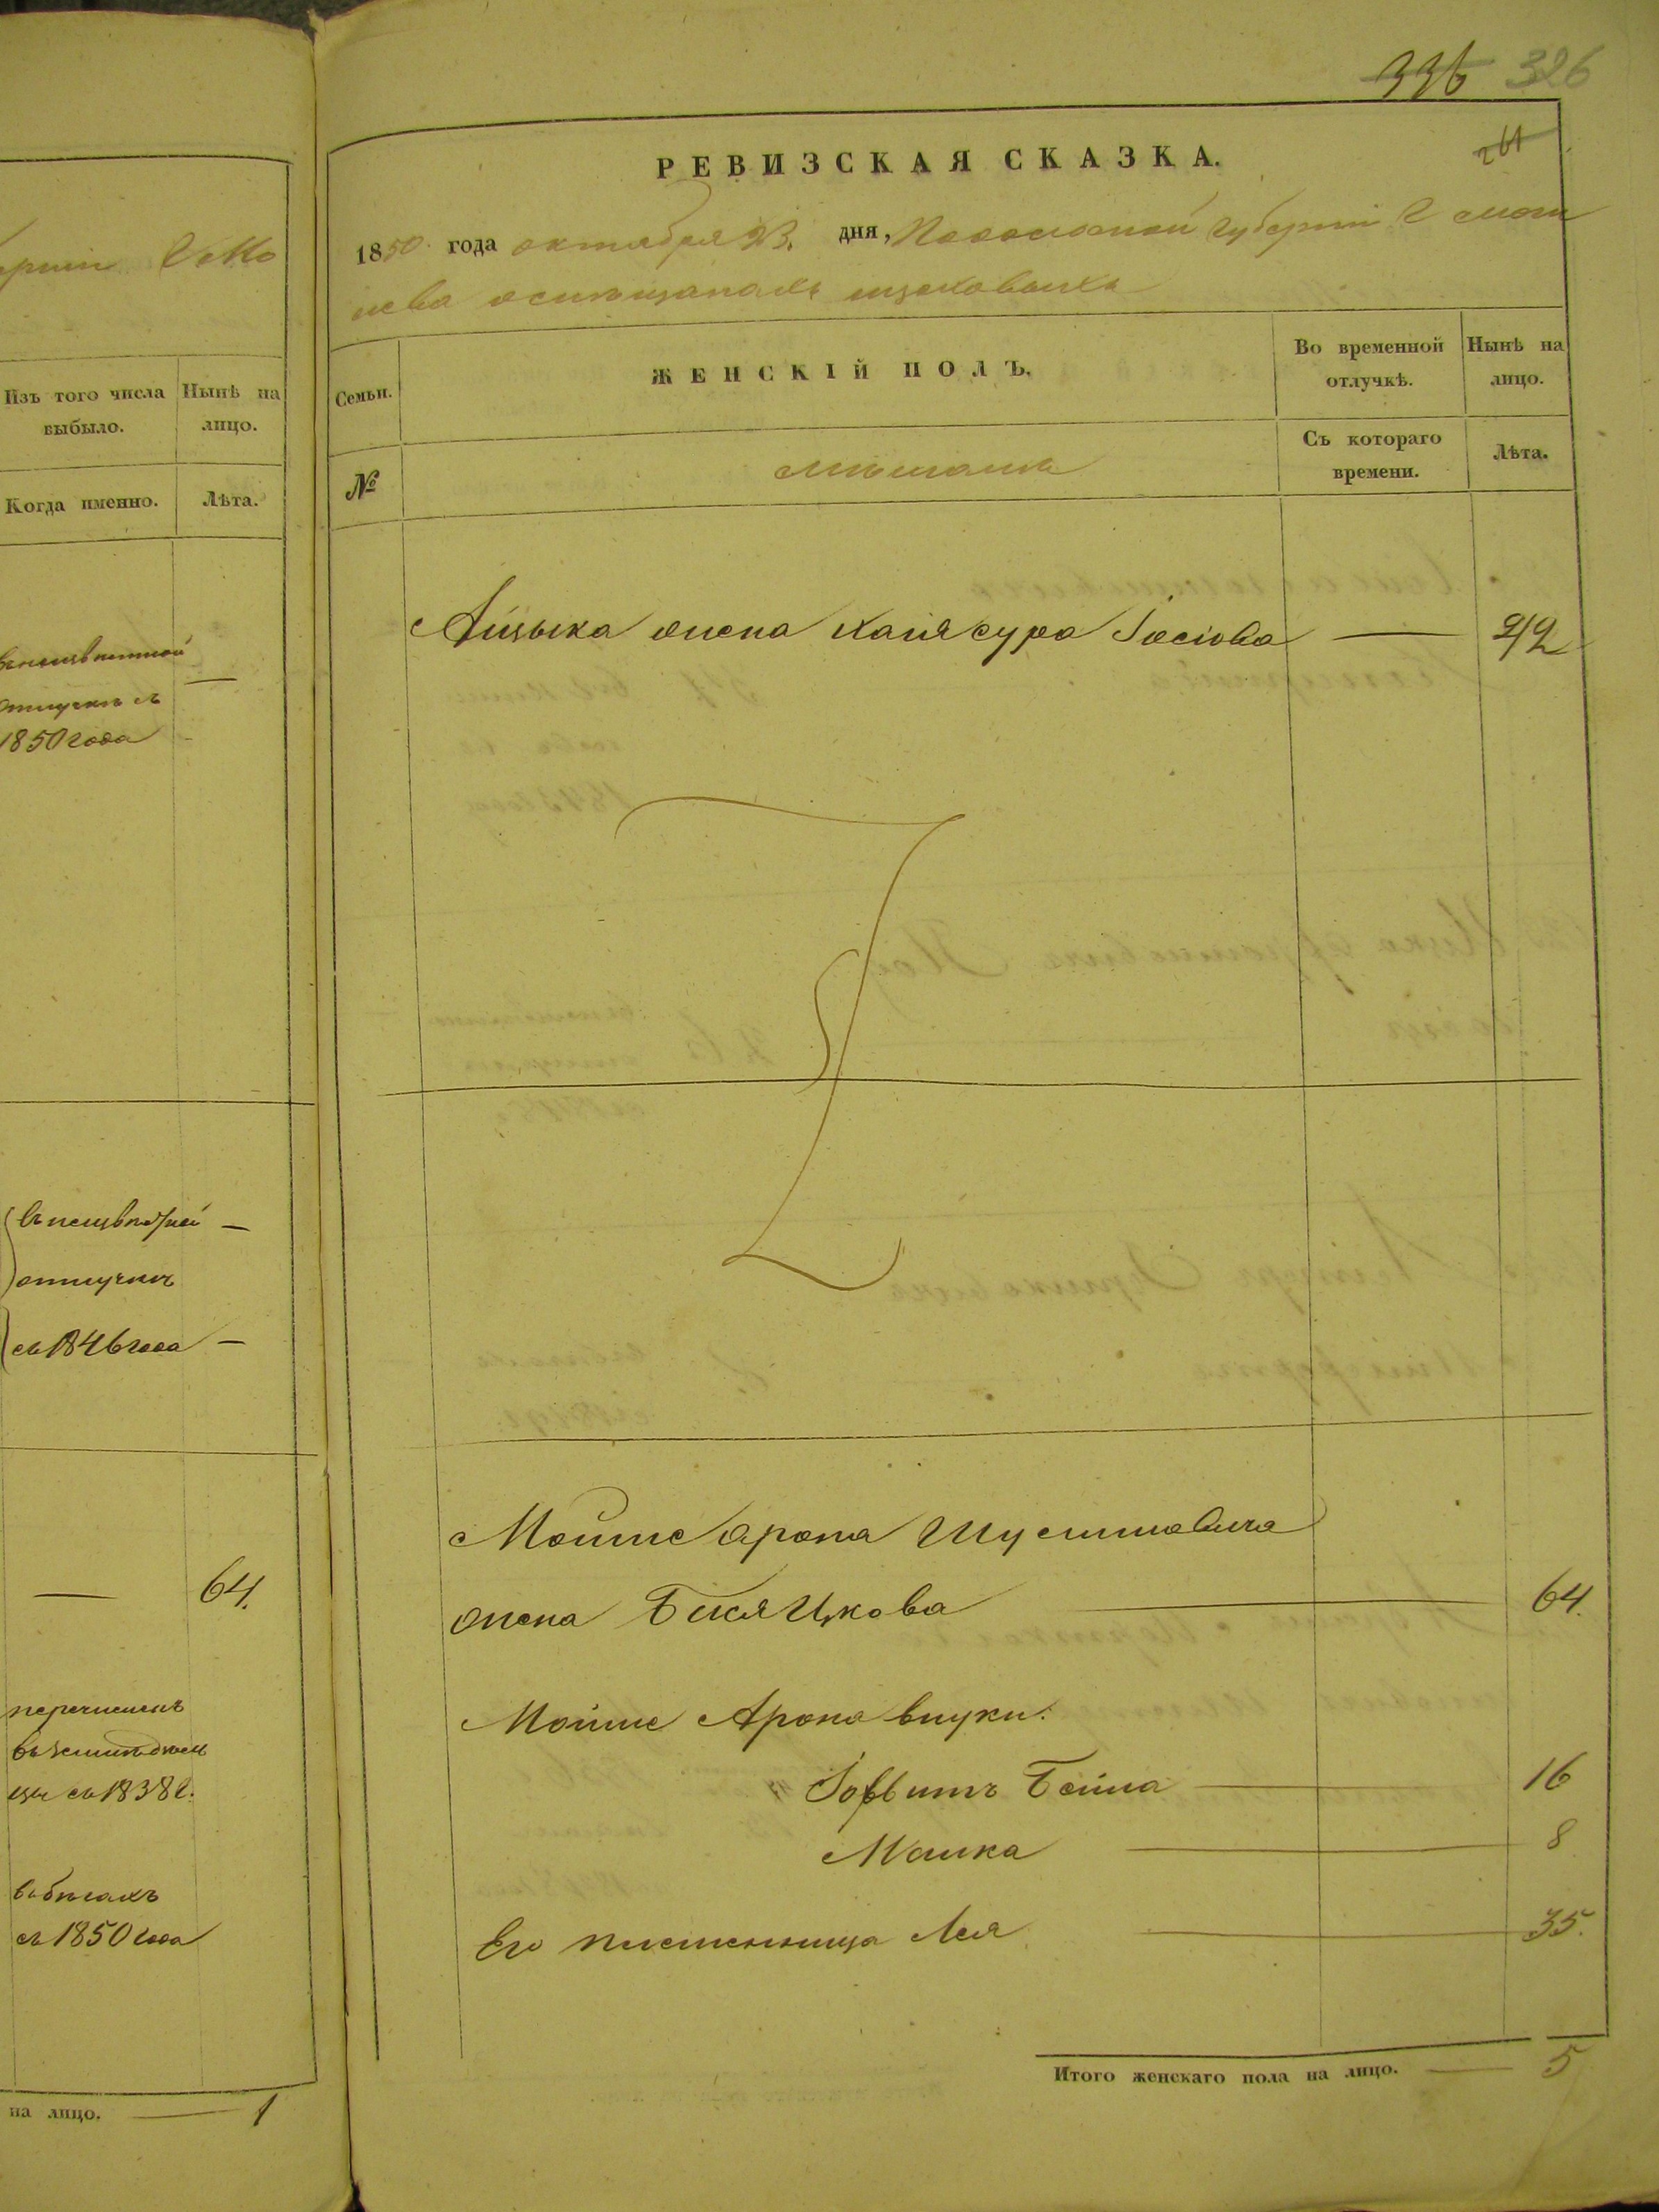 336 326
261
РЕВИЗСКАЯ СКАЗКА.
1850 года октября 23. дня, Подольской Губерніи Г моги
лева
ЖЕНСКІЙ ПОЛЪ.
Во временной
отлучкѣ.
Нынѣ на
лицо.
Семьи.
№
Съ котораго
времени.
Лѣта.
Айзыка жена хаия сура Іосіова — 42
Мойше Арона Шулимовича
жена Бися Ицкова — 64.
Мойше Арона внуки:
Бейла — 16
Малка — 8
Его племенница Лея — 35.
Итого женскаго пола на лицо. — 5
Изъ того числа
выбыло.
Нынѣ на
лицо.
Когда именно.
Лѣта.
въ неизвѣстной —
отлучкѣ съ
1850 года
въ неизвѣстной —
отлучкѣ
съ 1846 года —
— 64.
перечисленъ
въ земледѣль
цы съ 1838 г.
въ бѣгахъ
съ 1850 года
на лицо. — 1